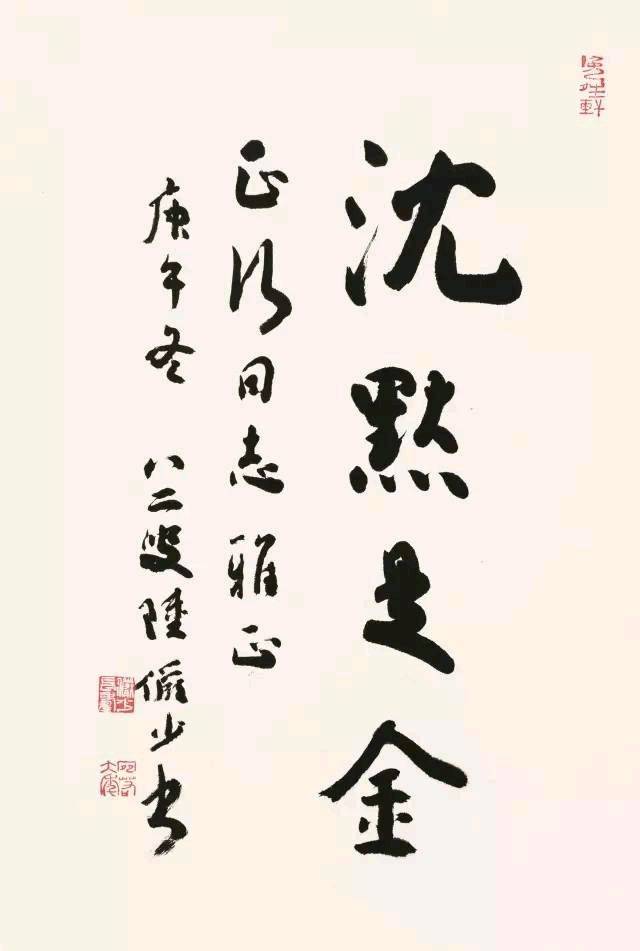 沈默是金
正清同志雅正
庚午冬 八二叟陸儼少書